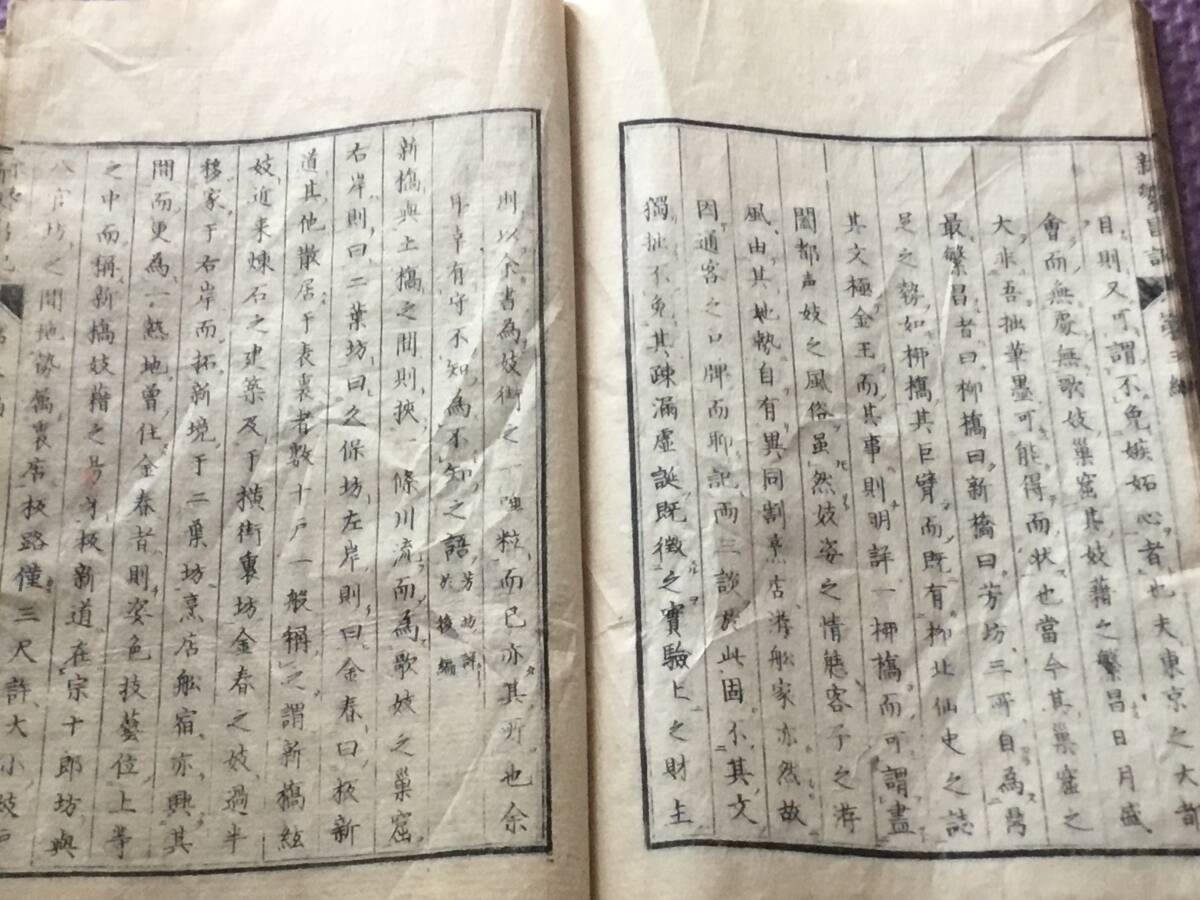 新繁昌記
目則又可謂不免嫉妬心者也夫東京之大都
會而無處無歌妓巢窟其妓藉之繁昌日月盛
大非吾拙筆墨可能得而状也當今其巢窟之
最繁昌者曰柳橋曰新橋曰芳坊三所自為鼎
足之勢如柳橋其巨臂而既有柳北仙史之誌
其文極金玉而其事則明詳一柳橋而可謂盡
闔都声妓之風俗雖然妓姿之情態客子之游
風由其地勢自有異同割烹店游船家亦然故
因通客之口牌而聊記両三談於此固不其文
獨拙不免其疎漏虚誕既徴之實驗上之財主
則以余書為妓街之一粒而已亦其所也余
有守不知為不知之語芳坊詳於後編
新橋與土橋之間則挾一條川流而為歌妓之巢窟
右岸則曰二葉坊曰久保坊左岸則曰金春曰板新
道其他散居于表裏者數十戸一般稱之謂新橋絃
妓近来煉石之建築及于横街裏坊金春之妓過半
移家于右岸而拓新境于二葉坊烹店船宿亦興其
間而更為一熱地曽住金春者則姿色技藝位上等
之中而稱新橋妓藉之号板新道在宗十郎坊與
八官坊之間地勢属裏店板路僅三尺許大小妓戸